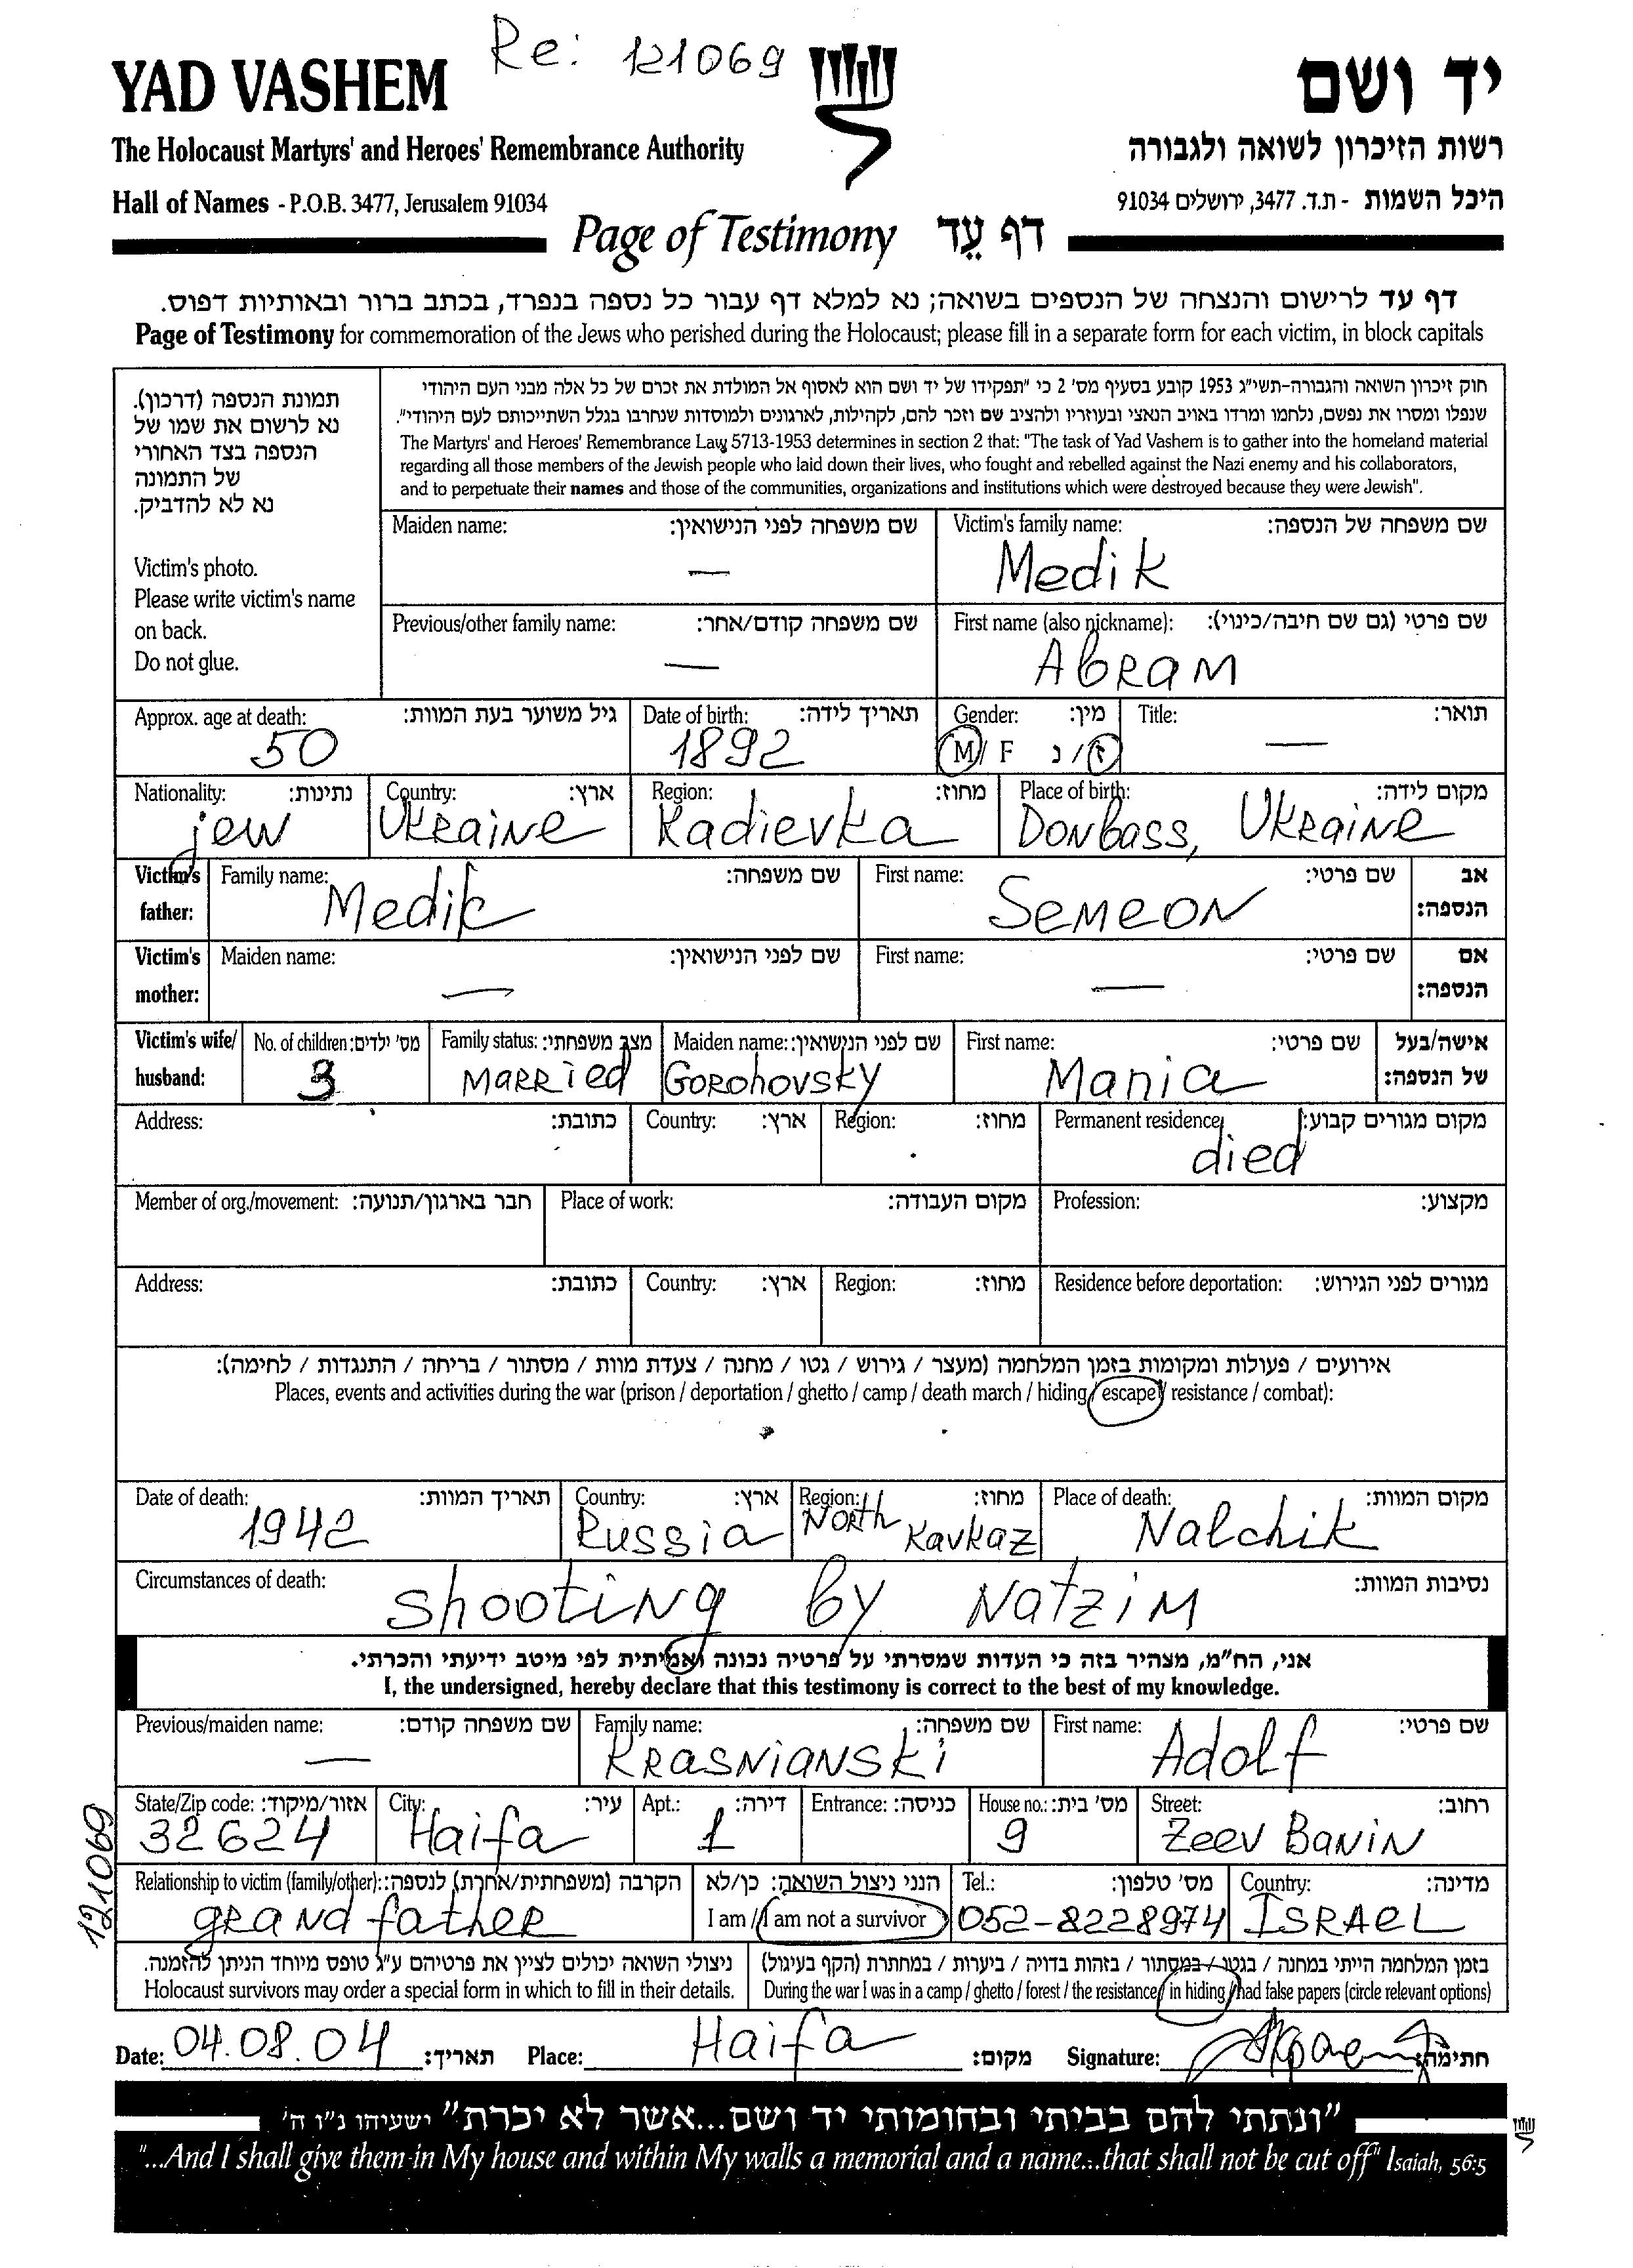 Re: 121069
YAD VASHEM יד ושם
The Holocaust Martyrs' and Heroes' Remembrance Authority רשות הזיכרון לשואה ולגבורה
Hall of Names - P.O.B. 3477, Jerusalem 91034 היכל השמות - ת.ד. 3477, ירושלים 91034
Page of Testimony דף עֵד
דף עד לרישום והנצחה של הנספים בשואה; נא למלא דף עבור כל נספה בנפרד, בכתב ברור ובאותיות דפוס.
Page of Testimony for commemoration of the Jews who perished during the Holocaust; please fill in a separate form for each victim, in block capitals
תמונת הנספה (דרכון).
נא לרשום את שמו של
הנספה בצד האחורי
של התמונה
נא לא להדביק.
Victim's photo.
Please write victim's name
on back.
Do not glue.
חוק זיכרון השואה והגבורה-תשי"ג 1953 קובע בסעיף מס' 2 כי "תפקידו של יד ושם הוא לאסוף אל המולדת את זכרם של כל אלה מבני העם היהודי
שנפלו ומסרו את נפשם, נלחמו ומרדו באויב הנאצי ובעוזריו ולהציב שם וזכר להם, לקהילות, לארגונים ולמוסדות שנחרבו בגלל השתייכותם לעם היהודי".
The Martyrs' and Heroes' Remembrance Law, 5713-1953 determines in section 2 that: "The task of Yad Vashem is to gather into the homeland material
regarding all those members of the Jewish people who laid down their lives, who fought and rebelled against the Nazi enemy and his collaborators,
and to perpetuate their names and those of the communities, organizations and institutions which were destroyed because they were Jewish".
Maiden name: שם משפחה לפני הנישואין: Victim's family name: שם משפחה של הנספה:
— Medik
Previous/other family name: שם משפחה קודם/אחר: First name (also nickname): שם פרטי (גם שם חיבה/כינוי):
— Abram
Approx. age at death: גיל משוער בעת המוות: Date of birth: תאריך לידה: Gender: מין: Title: תואר:
50 1892 M/ F נ /ז —
Nationality: נתינות: Country: ארץ: Region: מחוז: Place of birth: מקום לידה:
jew Ukraine Kadievka Donbass, Ukraine
Victim's father: Family name: שם משפחה: First name: שם פרטי: אב הנספה:
Medik Semeon
Victim's mother: Maiden name: שם לפני הנישואין: First name: שם פרטי: אם הנספה:
— —
Victim's wife/ husband: No. of children: מס' ילדים: Family status: מצב משפחתי: Maiden name: שם לפני הנישואין: First name: שם פרטי: אישה/בעל של הנספה:
3 Married Gorohovsky Mania
Address: כתובת: Country: ארץ: Region: מחוז: Permanent residence: מקום מגורים קבוע:
died
Member of org./movement: חבר בארגון/תנועה: Place of work: מקום העבודה: Profession: מקצוע:
Address: כתובת: Country: ארץ: Region: מחוז: Residence before deportation: מגורים לפני הגירוש:
אירועים / פעולות ומקומות בזמן המלחמה (מעצר / גירוש / גטו / מחנה / צעדת מוות / מסתור / בריחה / התנגדות / לחימה):
Places, events and activities during the war (prison / deportation / ghetto / camp / death march / hiding / escape / resistance / combat):
Date of death: תאריך המוות: Country: ארץ: Region: מחוז: Place of death: מקום המוות:
1942 Russia North Kavkaz Nalchik
Circumstances of death: נסיבות המוות:
shooting by Natzim
אני, הח"מ, מצהיר בזה כי העדות שמסרתי על פרטיה נכונה ואמיתית לפי מיטב ידיעתי והכרתי.
I, the undersigned, hereby declare that this testimony is correct to the best of my knowledge.
Previous/maiden name: שם משפחה קודם: Family name: שם משפחה: First name: שם פרטי:
— Krasnianski Adolf
State/Zip code: אזור/מיקוד: City: עיר: Apt.: דירה: Entrance: כניסה: House no.: מס' בית: Street: רחוב:
32624 Haifa 1 9 Zeev Banin
Relationship to victim (family/other): הקרבה (משפחתית/אחרת) לנספה: הנני ניצול השואה: כן/לא Tel.: מס' טלפון: Country: מדינה:
grand father I am / I am not a survivor 052-8228974 Israel
ניצולי השואה יכולים לציין את פרטיהם ע"ג טופס מיוחד הניתן להזמנה. בזמן המלחמה הייתי במחנה / בגטו / במסתור / בזהות בדויה / ביערות / במחתרת (הקף בעיגול)
Holocaust survivors may order a special form in which to fill in their details. During the war I was in a camp / ghetto / forest / the resistance / in hiding / had false papers (circle relevant options)
121069
Date: 04.08.04 תאריך: Place: Haifa מקום: Signature: חתימה:
"ונתתי להם בביתי ובחומותי יד ושם...אשר לא יכרת" ישעיהו נ"ו ה'
"...And I shall give them in My house and within My walls a memorial and a name...that shall not be cut off" Isaiah, 56:5